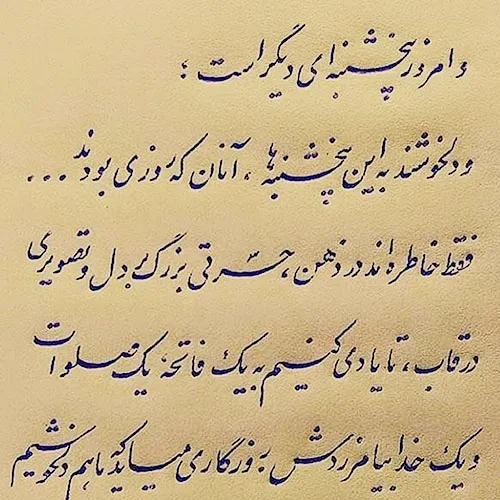 و امروز پنجشنبه ای دیگر است ؛
و دلخوشند به این پنجشنبه ها ، آنان که روزی بودند ...
فقط خاطره اند در ذهن ، حسرتی بزرگ بر دل و تصویری
در قاب ، تا یادی کنیم به یک فاتحه یک صلوات
و یک خدا بیامرزدش روزگاری میآید که ما هم دلخوشیم